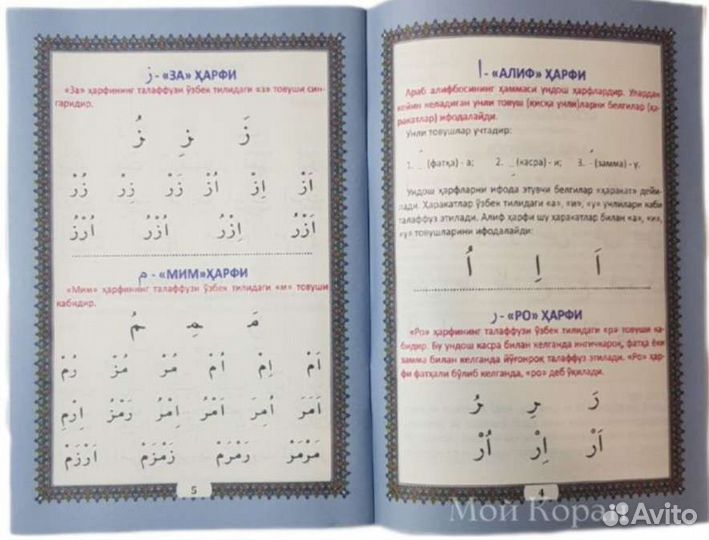 أ - «АЛИФ» ҲАРФИ
Араб алифбосининг ҳаммаси ундош ҳарфлардир. Улардан
кейин келадиган унли товуш (қисқа унли)ларни белгилар (ҳа-
ракатлар) ифодалайди.
Унли товушлар учтадир:
1. َ (фатҳа) - а; 2. ِ (касра) - и; 3. ُ (замма) - у.
Ундош ҳарфларни ифода этувчи белгилар «ҳаракат» дейи-
лади. Ҳаракатлар ўзбек тилидаги «а», «и», «у» унлилари каби
талаффуз этилади. Алиф ҳарфи шу ҳаракатлар билан «а», «и»,
«у» товушларини ифодалайди:
اَ اِ اُ
ر - «РО» ҲАРФИ
«Ро» ҳарфининг талаффузи ўзбек тилидаги «р» товуши ка-
бидир. Бу ундош касра билан келганда ингичкароқ, фатҳа ёки
замма билан келганда йўғонроқ талаффуз этилади. «Ро» ҳар-
фи фатҳали бўлиб келганда, «ро» деб ўқилади.
رَ رِ رُ
اَرْ اِرْ اُرْ
4
ز - «ЗА» ҲАРФИ
«За» ҳарфининг талаффузи ўзбек тилидаги «з» товуши син-
гаридир.
زَ زِ زُ
اَزْ اِزْ اُزْ زَرْ زِرْ زُرْ
اَزْرُ اِزْرُ اُزْرُ اُرْزُ
م - «МИМ»ҲАРФИ
«Мим» ҳарфининг талаффузи ўзбек тилидаги «м» товуши
кабидир.
مَ مِ مُ
اَمْ اِمْ اُمْ مُرْ مُزْ رُمْ
اَمَرَ اُمِرَ اَمْرُ اِمْرُ رَمْزُ اِرْمِ
مَرْمَرْ رَمْرَمْ زَمْزَمْ اَرْزَمْ
5
Мой Коран
Avito